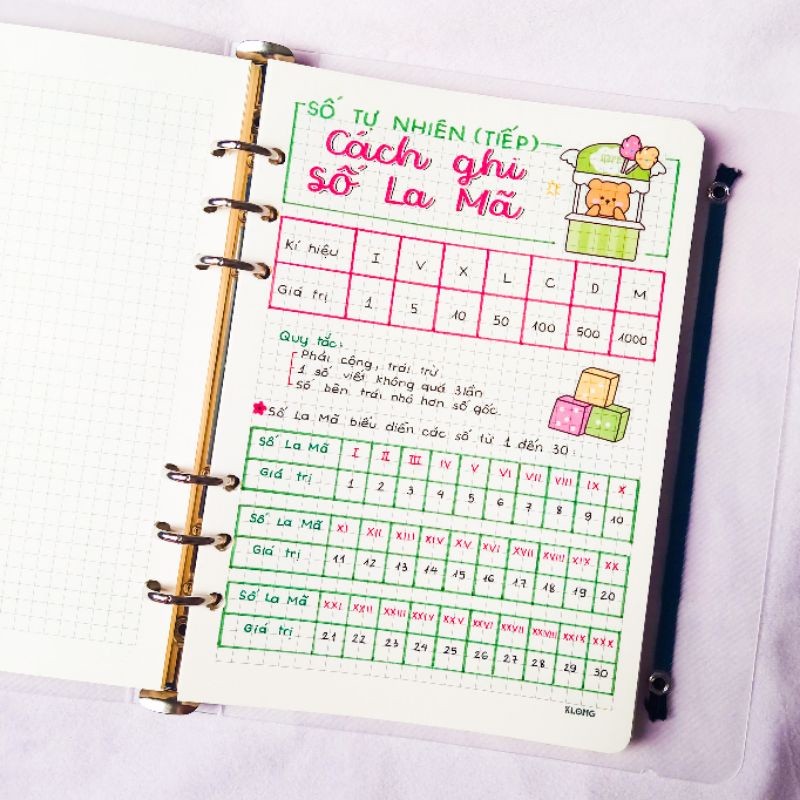 SỐ TỰ NHIÊN (TIẾP)
Cách ghi
Số La Mã
Kí hiệu I V X L C D M
Giá trị 1 5 10 50 100 500 1000
Quy tắc:
Phải cộng, trái trừ
1 số viết không quá 3 lần
Số bên trái nhỏ hơn số gốc.
Số La Mã biểu diễn các số từ 1 đến 30:
Số La Mã I II III IV V VI VII VIII IX X
Giá trị 1 2 3 4 5 6 7 8 9 10
Số La Mã XI XII XIII XIV XV XVI XVII XVIII XIX XX
Giá trị 11 12 13 14 15 16 17 18 19 20
Số La Mã XXI XXII XXIII XXIV XXV XXVI XXVII XXVIII XXIX XXX
Giá trị 21 22 23 24 25 26 27 28 29 30
KLONG